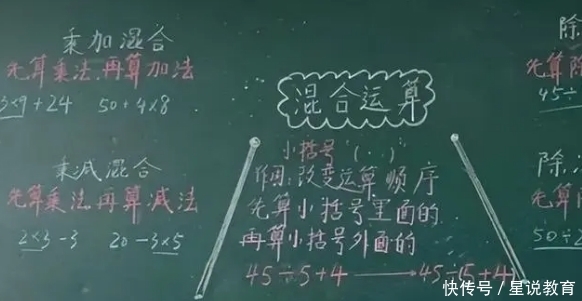 乘加混合
先算乘法,再算加法
3×9+24 50+4×8
乘减混合
先算乘法,再算减法
2×3-3 20-3×5
混合运算
小括号"(..)"
作用:改变运算顺序
先算小括号里面的
再算小括号外面的
45÷5+4 45÷(5+4)
除
先算除
45÷
除
先算除
50÷2
快传号/星说教育